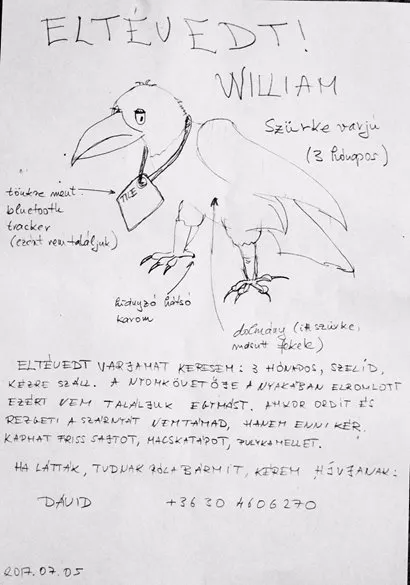 ELTÉVEDT!
WILLIAM
Szürke varjú
(3 hónapos)
tönkre ment
bluetooth
tracker
(ezért nem találjuk)
TILE
hiányzó hátsó
karom
dolmány (itt szürke,
másutt fekete)
ELTÉVEDT VARJAMAT KERESEM: 3 HÓNAPOS, SZELÍD,
KÉZRE SZÁLL. A NYOMKÖVETŐJE A NYAKÁBAN ELROMLOTT
EZÉRT NEM TALÁLJUK EGYMÁST. AMKOR ORDÍT ÉS
REZGETI A SZÁRNYÁT NEM TÁMAD, HANEM ENNI KÉR.
KAPHAT FRISS SAJTOT, MACSKATÁPOT, PULYKAMELLET.
HA LÁTTÁK, TUDNAK RÓLA BÁRMIT, KÉREM HÍVJANAK:
DÁVID +36 30 4606270
2017.07.05